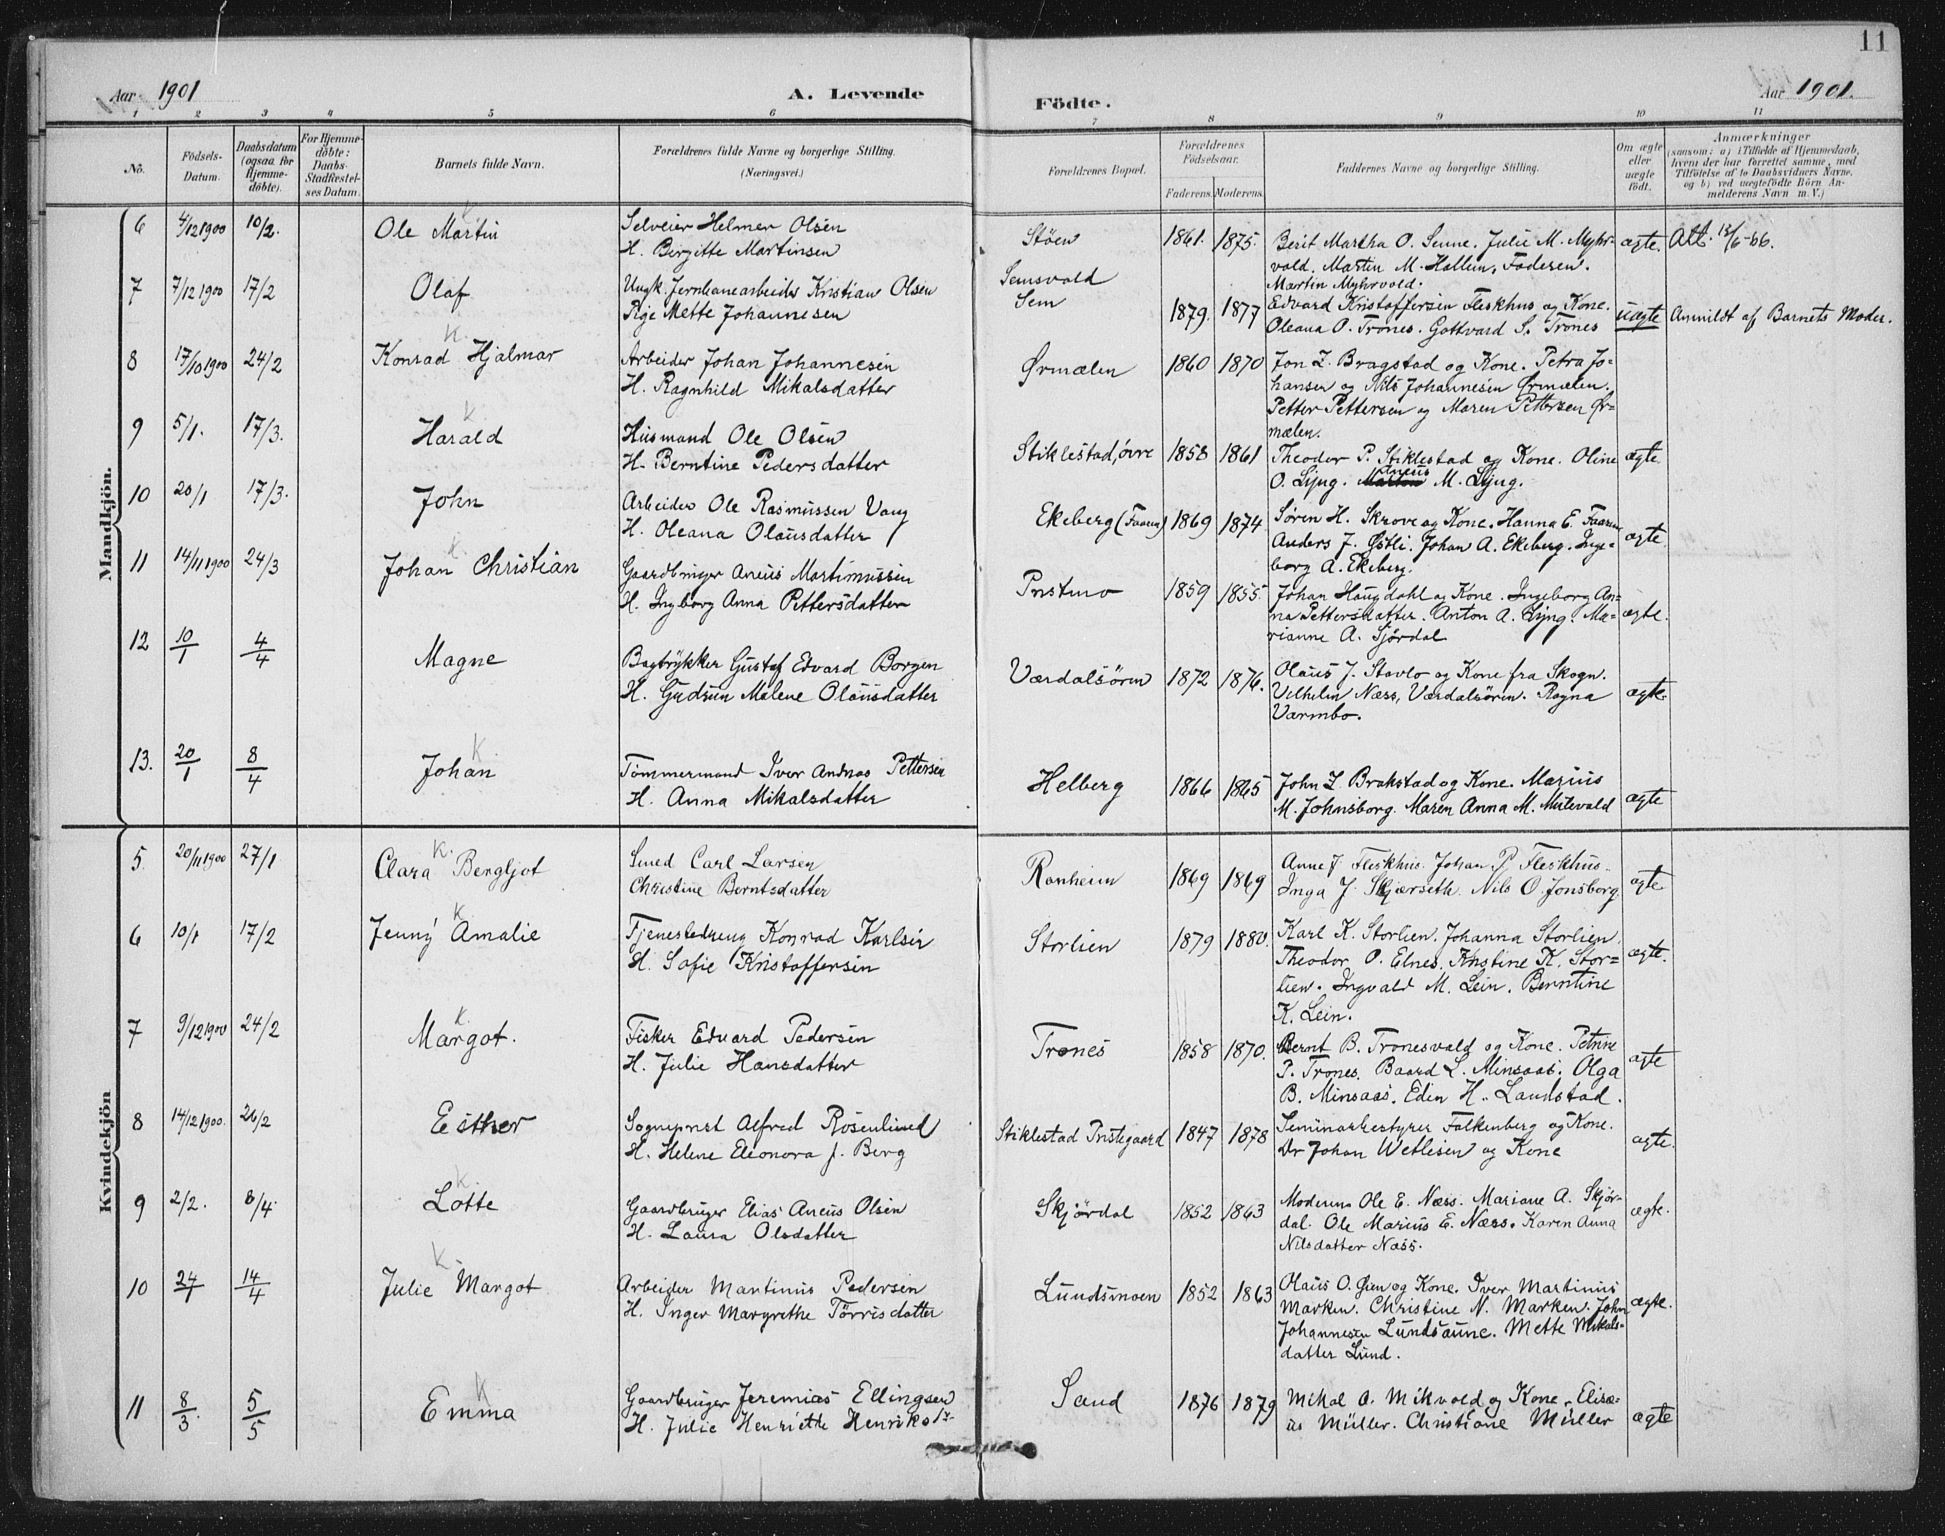 11
Aar 1901
A. Levende
Födte.
Aar 1901.
1 2 3 4 5 6 7 8 9 10 11
No.
Födsels-
Datum.
Daabsdatum
(ogsaa for
Hjemme-
döbte).
For Hjemme-
döbte:
Daabs-
Stadfæstel-
ses Datum.
Barnets fulde Navn.
Forældrenes fulde Navne og borgerlige Stilling.
(Næringsvei.)
Forældrenes Bopæl.
Forældrenes
Födselsaar.
Faderens. Moderens.
Faddernes Navne og borgerlige Stilling.
Om ægte
eller
uægte
født.
Anmærkninger
(saasom: a) i Tilfælde af Hjemmedaab,
hvem der har forrettet samme, med
Tilföielse af to Daabsvidners Navne,
og b) ved uægtefödte Börn An-
melderens Navn m. V.)
Mandkjön.
6 4/12 1900 10/2. Ole Martin
Selveier Helmer Olsen
H. Birgitte Martinsen
Støen 1861. 1875.
Berit Martha O. Senne. Julie M. Myhr-
vold. Martin M. Hallem, Faderen.
Martin Myhrvold.
ægte. Att. 13/6-66.
7 7/12 1900 17/2 Olaf
Ungk. Jernbanearbeider Kristian Olsen
Pige Mette Johannesen
Semsvald
Sem 1879. 1877
Edvard Kristoffersen Fleskhus og Kone.
Oleana O. Trones. Gottvard S. Trones
uægte Anmeldt af Barnets Moder.
8 17/10 1900 24/2 Konrad Hjalmar
Arbeider Johan Johannesen
H. Ragnhild Mikalsdatter
Ørmælen 1860 1870
Jon Z. Bragstad og Kone. Petra Jo-
hansen og Nils Johannesen Ørmælen.
Petter Pettersen og Maren Pettersen Ør-
mælen.
9 5/1. 17/3. Harald
Husmand Ole Olsen
H. Berntine Pedersdatter
Stiklestad, övre 1858 1861
Theodor P. Stiklestad og Kone. Oline
O. Ljyng. Aneus M. Ljyng.
ægte.
10 20/1 17/3. John
Arbeider Ole Rasmussen Vang
H. Oleana Olausdatter
Ekeberg (Faaren) 1869 1874
Søren H. Skrove og Kone. Hanna E. Faaren
Anders J. Østli. Johan A. Ekeberg. Inge-
borg A. Ekeberg.
ægte
11 14/11 1900 24/3 Johan Christian
Gaardbruger Aneus Martinussen
H. Ingborg Anna Pettersdatter
Prstmo 1859 1855.
Johan Haugdahl og Kone. Ingeborg An-
na Pettersdatter. Anton A. Ljyng. Ma-
rianne A. Sjördal
ægte.
12 10/1 4/4 Magne
Bogtrykker Gustaf Edvard Borgen
H. Gudrun Malene Olausdatter
Værdalsören 1872 1876.
Olaus J. Stavlo og Kone fra Skogn.
Vilhelm Næss, Værdalsören. Ragna
Varmbo.
ægte.
13. 20/1 8/4 Johan
Tømmermand Iver Andreas Pettersen
H. Anna Mikalsdatter
Helberg 1866 1865
John Z. Brakstad og Kone. Marius
M. Johnsborg. Maren Anna M. Mitevald
ægte
Kvindekjön
5 20/11 1900 27/1 Clara Bergljot
Smed Carl Larsen
Christine Berntsdatter
Ronheim 1869 1869
Anne J. Fleskhus. Johan P. Fleskhus.
Inga J. Skjærseth. Nils O. Jonsborg.
ægte
6 10/1 17/2 Jenny Amalie
Tjenestedreng Konrad Karlsen
H. Sofie Kristoffersen
Storlien 1879 1880.
Karl K. Storlien. Johanna Storlien.
Theodor O. Elnes. Kristine K. Stor-
lien. Ingvald M. Lein. Berntine
K. Lein.
ægte.
7 9/12 1900 24/2 Margot.
Fisker Edvard Pedersen
H. Julie Hansdatter
Trones 1858 1870.
Bernt B. Tronesvald og Kone. Petrine
P. Trones. Baard L. Minsaas. Olga
B. Minsaas. Eden H. Landstad.
ægte
8 14/12 1900. 26/2 Esther
Sogneprest Alfred Rosenlund
H. Helene Eleonora J. Berg
Stiklestad Prstegaard 1847 1878
Seminarbestyrer Falkenberg og Kone.
Dr Johan Wetlesen og Kone
ægte.
9 2/2. 8/4. Lotte
Gaardbruger Elias Aneus Olsen
H. Laura Olsdatter
Skjördal 1852 1863
Moderen. Ole E. Næss. Mariane A. Skjör-
dal. Ole Marius E. Næss. Karen Anna
Nilsdatter Næss.
ægte.
10 24/1 14/4 Julie Margot
Arbeider Martinus Pedersen
H. Inger Margrethe Törrisdatter
Lundsmoen 1852 1863
Olaus O. Øien og Kone. Iver Martinus
Marken. Christine N. Marken. John
Johannesen Lundsaune. Mette Mikals-
datter Lund.
ægte.
11 8/3. 5/5 Emma
Gaardbruger Jeremias Ellingsen
H. Julie Henriette Henriksdr.
Sand 1876 1879
Mikal O. Mikvold og Kone. Elisæ-
us Müller. Christiane Müller
ægte